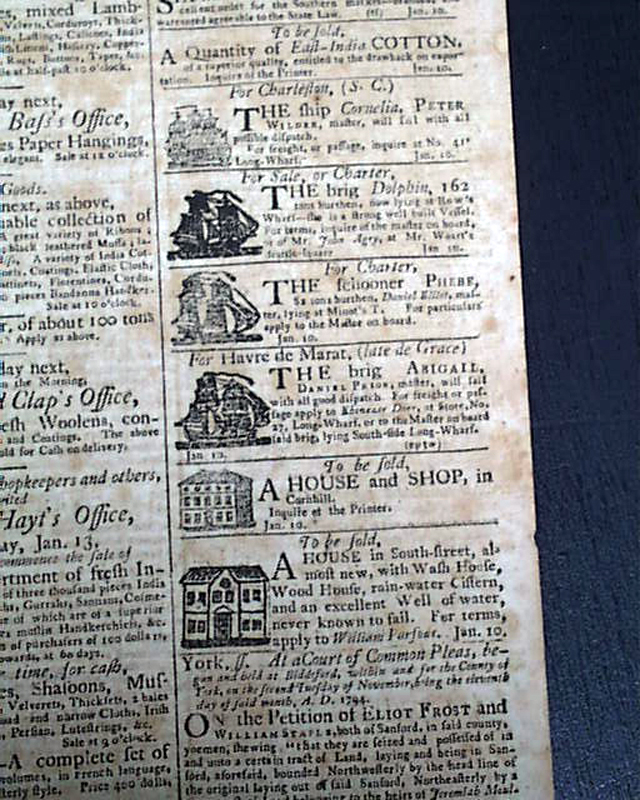 , mixed Lamb-
Velverts, Corduroys, Thick-
Lastings, Calicoes, India
Hosiery, Copper-
Rugs, Buttons, Tapes, &c.
at half-past 10 o'clock.
ay next,
Bass's Office,
es Paper Hangings,
elegant. Sale at 12 o'clock.
Goods.
next, as above,
uable collection of
A great variety of Ribons;
black feathered Muffs; la-
A variety of India Cot-
Coatings, Elastic Cloth,
Florentines, Cordu-
pieces Bandanna Handker-
Sale at 10 o'clock.
r, of about 100 tons
Apply as above.
day next,
in the Morning,
Clap's Office,
esh Woolens, con-
and Coatings. The above
old for Cash on delivery.
hopkeepers and others,
Hayt's Office,
ay, Jan. 13,
commence the sale of
rtment of fresh In-
of three thousand pieces India
Gurrahs, Sannas,
of which are of a superior
muslin Handkerchiefs, &c.
of purchasers of 100 dollars,
wards, at 60 days.
time, for cash,
es, Shaloons, Mus-
Velverets, Thicksets, 2 bales
and narrow Cloths, Irish
Persian, Lutestrings, &c.
Sale at 9 o'clock.
A complete set of
volumes, in French language,
Price 400 dolls,
for the Southern
warranted agreeable to the State Law. Jan. 10.
To be sold,
A Quantity of East-India COTTON,
of a superior quality, entitled to the drawback on expor-
tation. Inquire of the Printer. Jan. 10.
For Charleston, (S. C.)
THE ship Cornelia, PETER
WILDER, master, will sail with all
possible dispatch.
For freight, or passage, inquire at No. 41
Long-Wharf. Jan. 10.
For Sale, or Charter,
THE brig Dolphin, 162
tons burthen, now lying at Row's
Wharf—she is a strong well built Vessel.
For terms, inquire of the master on board,
or of Mr. John at Mr.
Jan. 10.
For Charter,
THE schooner PHEBE,
tons burthen, Daniel mas-
ter, lying at Minot's T. For particulars
apply to the Master on board.
Jan. 10.
For Havre de Marat, (late de Grace)
THE brig ABIGAIL,
DANIEL master, will sail
with all good dispatch. For freight or pas-
sage apply to Ebenezer Dorr, at Store, No.
27, Long-Wharf, or to the Master on board
said brig, lying South-side Long-Wharf.
Jan 10.
To be sold,
A HOUSE and SHOP, in
Cornhill.
Inquire of the Printer.
Jan. 10.
To be sold,
A HOUSE in South-street, al-
most new, with Wash House,
Wood House, rain-water Cistern,
and an excellent Well of water,
never known to fail. For terms,
apply to William Jan. 10.
York, ss. At a Court of Common Pleas, be-
gun and held at Biddeford, within and for the County of
York, on the second Tuesday of November, being the eleventh
day of said month, A. D. 1794.
ON the Petition of ELIOT FROST and
WILLIAM both of Sanford, in said county,
yoemen, shewing "that they are seized and possessed of in
and unto a certain tract of Land, laying and being in San-
ford, aforesaid, bounded Northwesterly by the head line of
the original laying out of said Sanford, Northeasterly by a
belonging to the heirs of Jeremiah